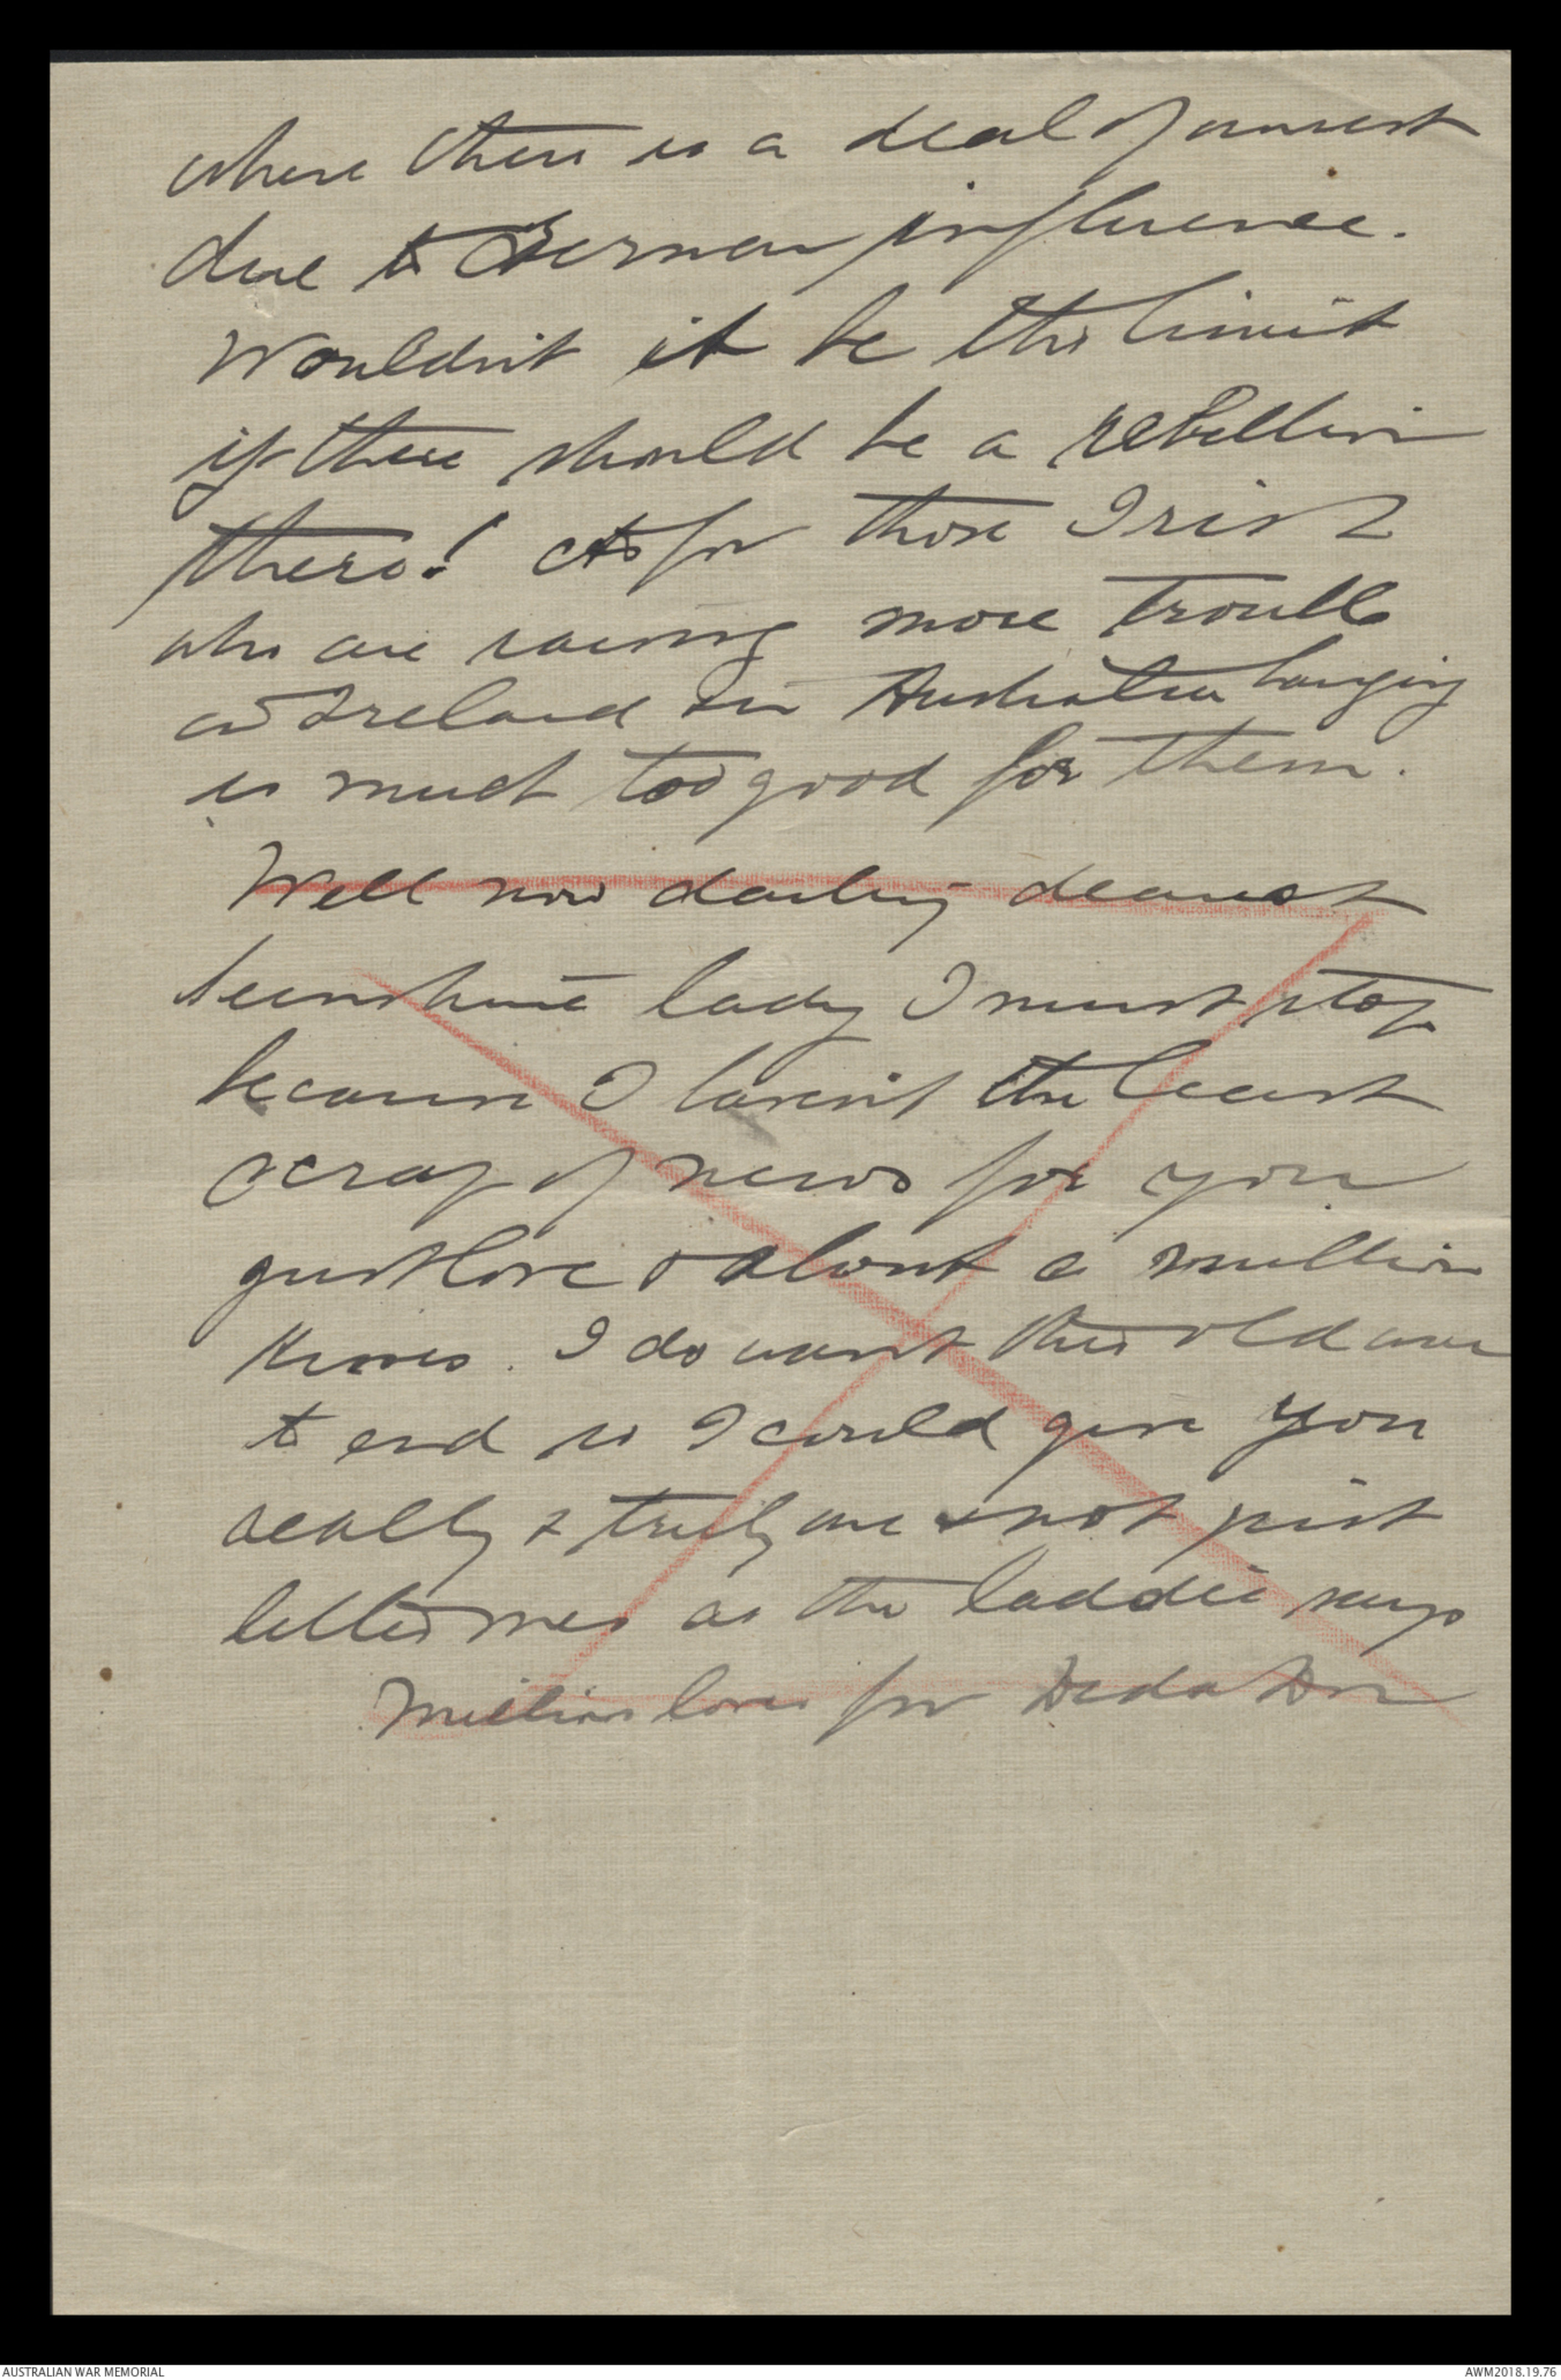 where there is a deal of unrest
due to German influence.
Wouldn't it be the limit
if there should be a rebellion
there! As for those Irish
who are raising more trouble
in Ireland & in Australia hanging
is much too good for them.
Well now darling dearest
sunshine lady I must stop
because I haven't the least
scrap of news for you
just love & about a million
kisses. I do want this old war
to end so I could give you
really & truly one & not just
letter ones as the laddie says
Million loves for
AUSTRALIAN WAR MEMORIAL
AWM2018.19.76